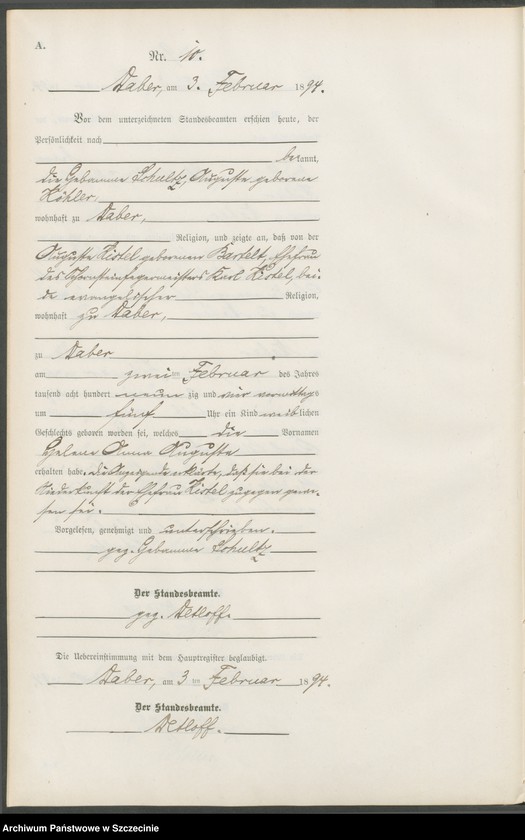 A.
Nr. 10.
Daber, am 3. Februar 1894.
Vor dem unterzeichneten Standesbeamten erschien heute, der
Persönlichkeit nach
bekannt,
die Hebamme Schultz, Auguste geborene
Köhler,
wohnhaft zu Daber,
Religion, und zeigte an, daß von der
Auguste Kistel geborenen Bartelt, Ehefrau
des Schornsteinfegermeisters Karl Kistel, bei-
de evangelischer Religion,
wohnhaft zu Daber,
zu Daber
am zwei ten Februar des Jahres
tausend acht hundert neun zig und vier vormittags
um fünf Uhr ein Kind weiblichen
Geschlechts geboren worden sei, welches die Vornamen
Helene Anna Auguste
erhalten habe. Die Anzeigende erklärte, daß sie bei der
Niederkunft der Ehefrau Kistel zugegen gewe-
sen sei.
Vorgelesen, genehmigt und unterschrieben.
gez. Hebamme Schultz
Der Standesbeamte.
gez. Detloff.
Die Uebereinstimmung mit dem Hauptregister beglaubigt.
Daber, am 3 ten Februar 1894.
Der Standesbeamte.
Detloff.
Archiwum Państwowe w Szczecinie